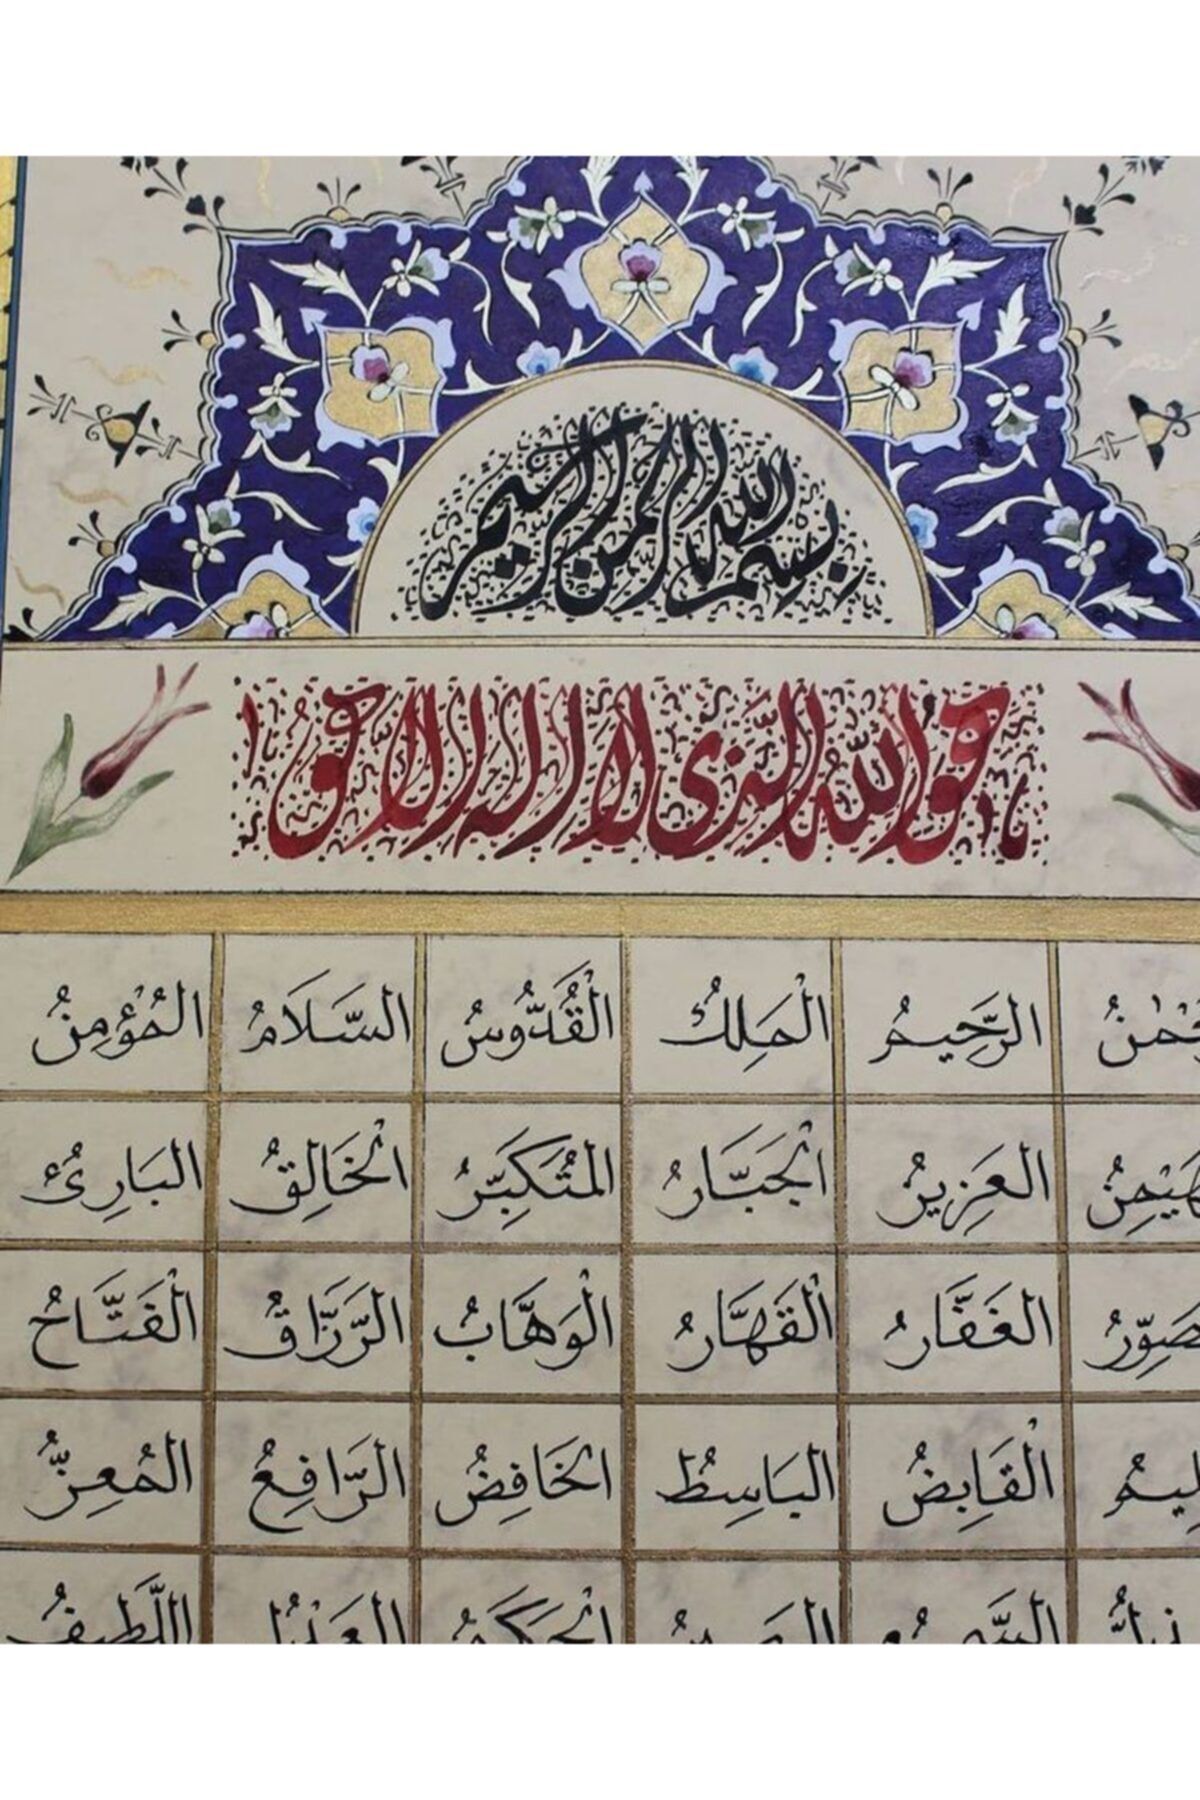 بسم الله الرحمن الرحيم
هو الله الذى لا اله الا هو
الرَّحِيمُ الْمَلِكُ الْقُدُّوسُ السَّلَامُ الْمُؤْمِنُ
الْعَزِيزُ الْجَبَّارُ الْمُتَكَبِّرُ الْخَالِقُ الْبَارِئُ
الْغَفَّارُ الْقَهَّارُ الْوَهَّابُ الرَّزَّاقُ الْفَتَّاحُ
الْقَابِضُ الْبَاسِطُ الْخَافِضُ الرَّافِعُ الْمُعِزُّ
اللَّطِيفُ